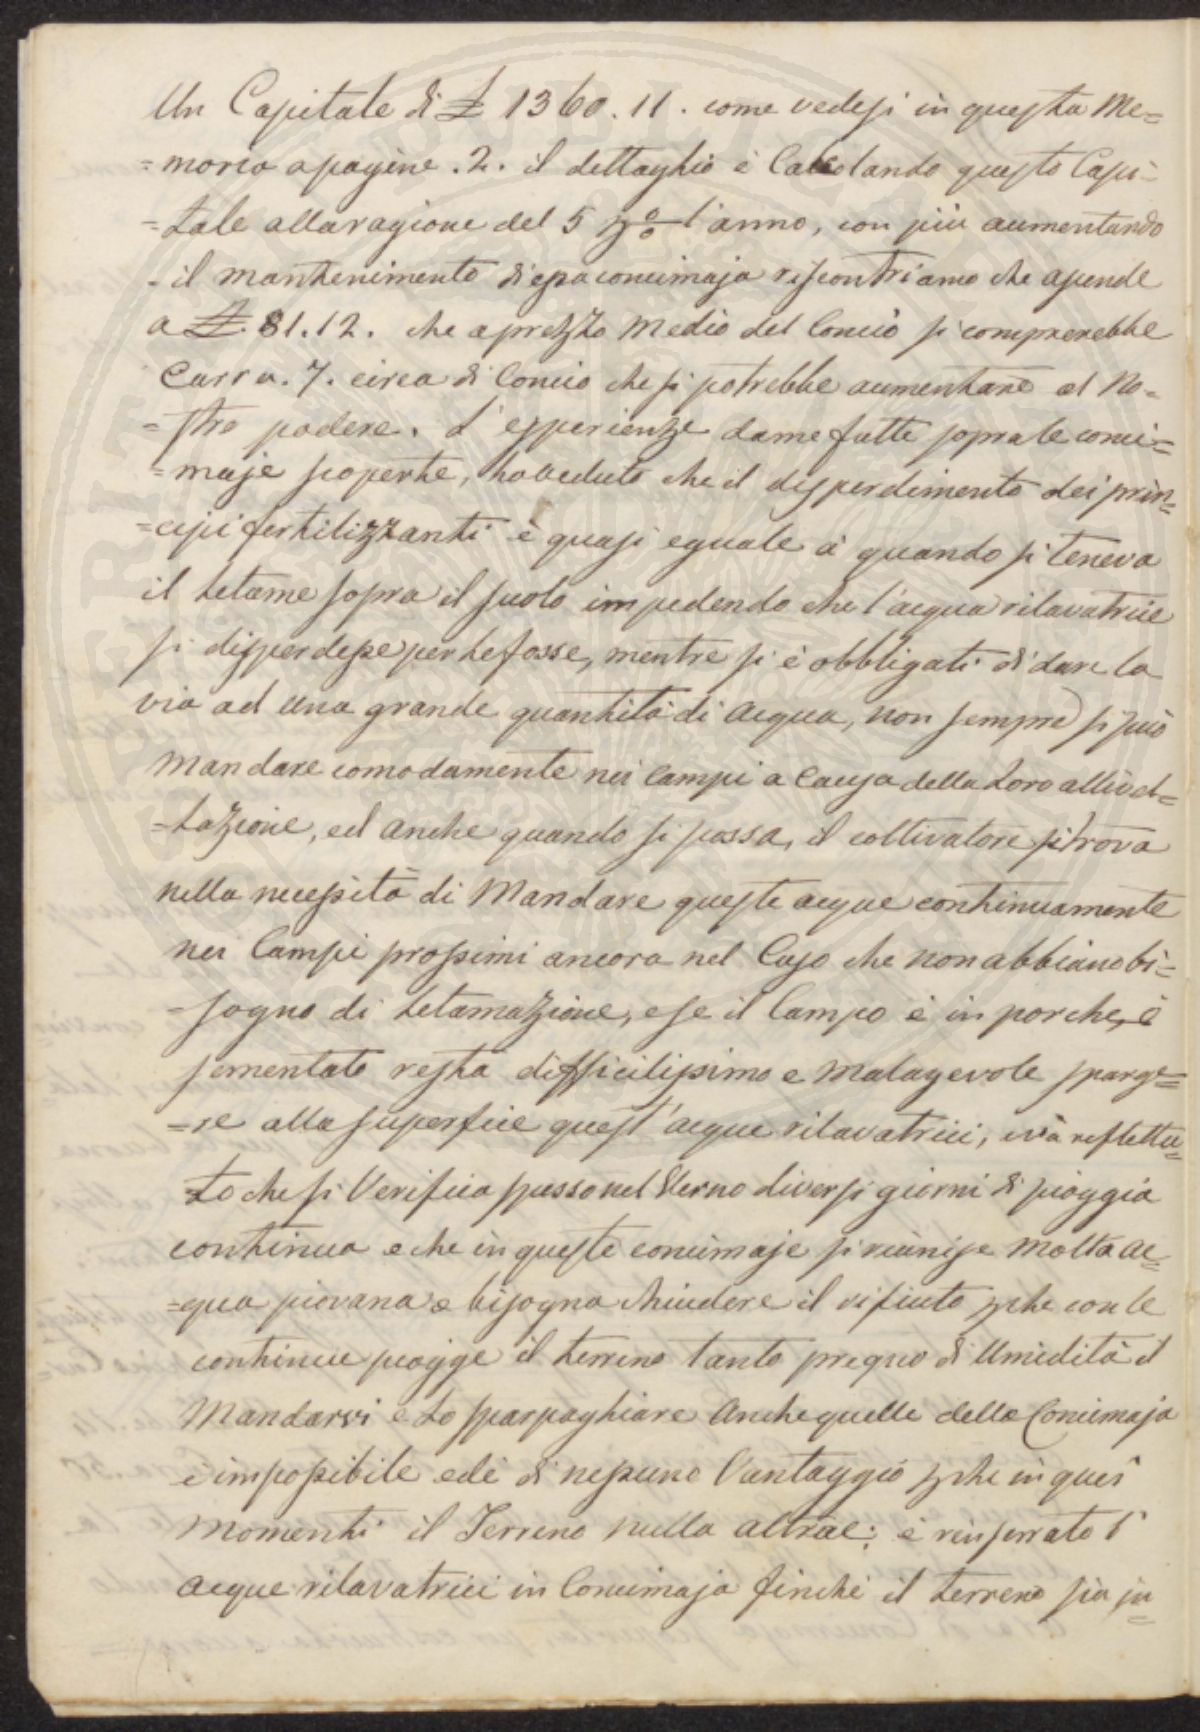 Un Capitale di £ 1360.11. come vedesi in questa Me=
=moria a pagine .2. il dettaglio e Calcolando questo Capi=
=tale alla ragione del 5 % l'anno, con più aumentando
- il mantenimento di essa concimaja riscontriamo che ascende
a £. 81.12. che a prezzo Medio del Concio si comprerebbe
Carra. 7. circa di Concio che si potrebbe aumentare al No=
=stro podere. L'esperienze da me fatte sopra le conci=
=maje scoperte, ho veduto che il disperdimento dei prin=
=cipi fertilizzanti è quasi eguale a quando si teneva
il letame sopra il suolo impedendo che l'acqua rilavatrice
si disperdesse per le fosse, mentre si è obbligati di dare la
via ad una grande quantità di Acqua, non sempre si può
Mandare comodamente nei Campi a Causa della Loro allivel=
=lazione, ed Anche quando si possa, il coltivatore si trova
nella necessità di Mandare queste acque continuamente
nei Campi prossimi ancora nel Caso che non abbiano bi=
=sogno di letamazione, e se il Campo è in porche, è
sementato resta difficilissimo e Malagevole sparge=
=re alla superfice quest'acque rilavatrici, và riflettu=
=to che si Verifica spesso nel Verno diversi giorni di pioggia
continua e che in queste concimaje si riunisce Molta Ac=
=qua piovana e bisogna chiudere il rifiuto pche con le
continue piogge il terreno tanto pregno di Umidità il
Mandarvi e Lo sparpagliare Anche quelle della Concimaja
è impossibile ed è di nessuno Vantaggio pche in quei
Momenti il Terreno nulla attrae; è rinserrato l'
Acque rilavatrici in Concimaja finchè il terreno sia in=